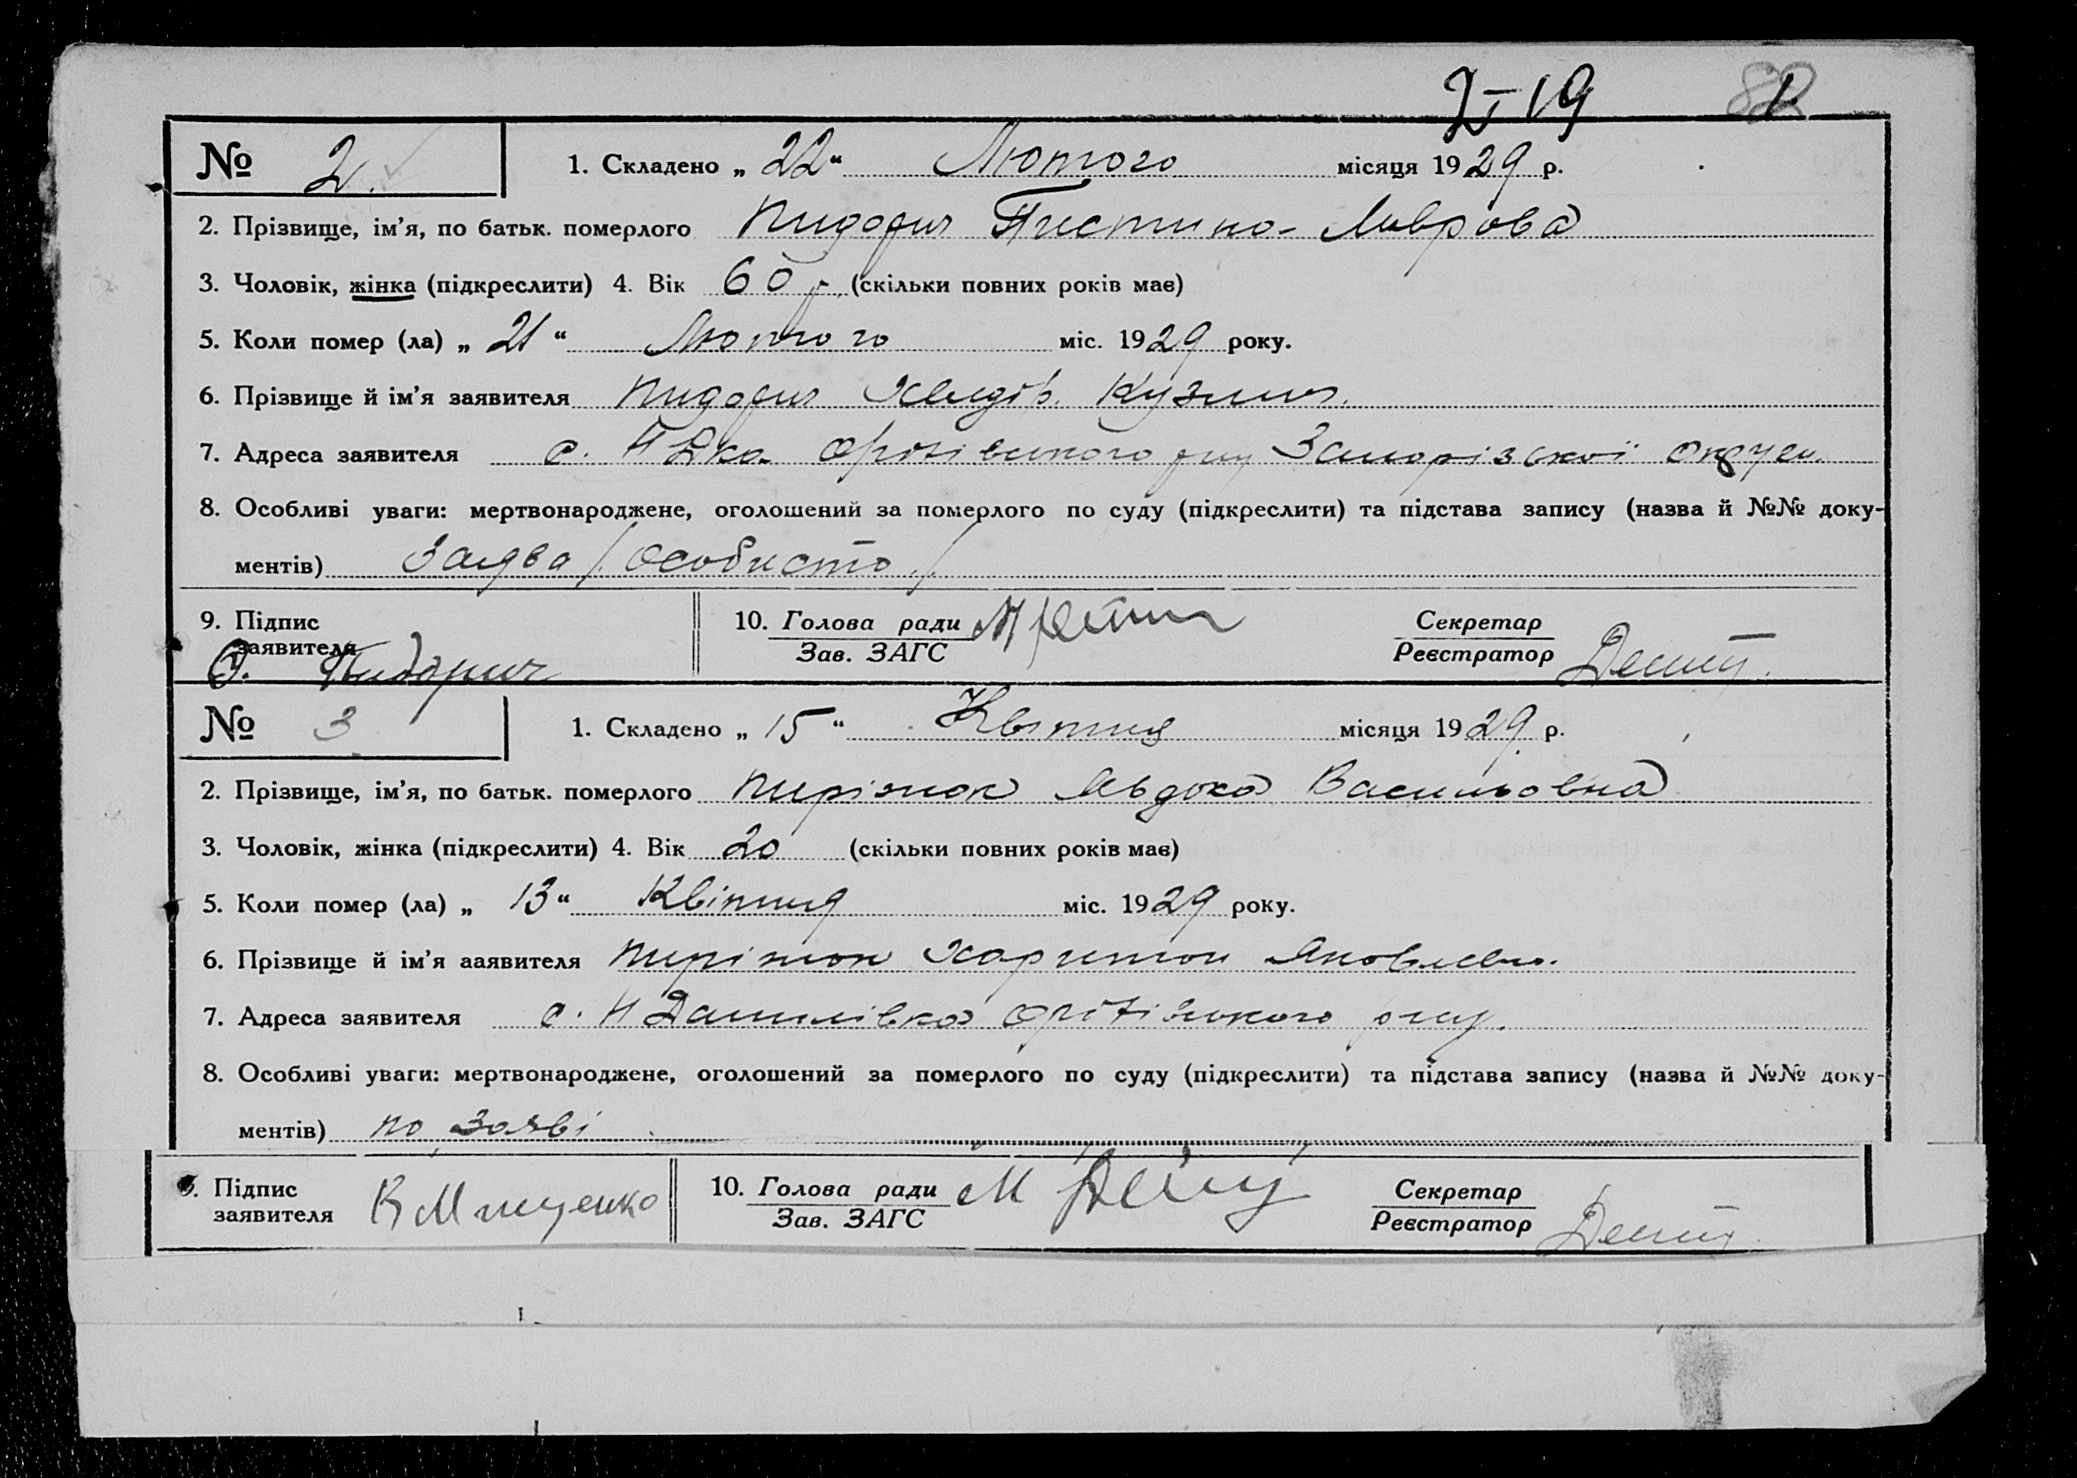 82
№ 2. 1. Складено „ 22 “ Лютого місяця 1929 р.
2. Прізвище, ім'я, по батьк. померлого Пидорич Пистина Лаврова
3. Чоловік, жінка (підкреслити) 4. Вік 60 (скільки повних років має)
5. Коли помер (ла) „ 21 “ Лютого міс. 1929 року.
6. Прізвище й ім'я заявителя Пидорич Хведір Кузмич.
7. Адреса заявителя с. НДка Оріхівського р-ну Запорізької округи.
8. Особливі уваги: мертвонароджене, оголошений за померлого по суду (підкреслити) та підстава запису (назва й №№ доку-
ментів) Заява /особисто/
9. Підпис заявителя Пидорич 10. Голова ради Зав. ЗАГС Секретар Реєстратор
№ 3 1. Складено „ 15 “ Квітня місяця 1929 р.
2. Прізвище, ім'я, по батьк. померлого Пиріжок Явдоха Васильовна
3. Чоловік, жінка (підкреслити) 4. Вік 20 (скільки повних років має)
5. Коли помер (ла) „ 13 “ Квітня міс. 1929 року.
6. Прізвище й ім'я заявителя Пиріжок Харитон Яковлевич.
7. Адреса заявителя с. Н Данилівка Оріхівського р-ну.
8. Особливі уваги: мертвонароджене, оголошений за померлого по суду (підкреслити) та підстава запису (назва й №№ доку-
ментів) по заяві
9. Підпис заявителя К Мищенко 10. Голова ради Зав. ЗАГС Секретар Реєстратор